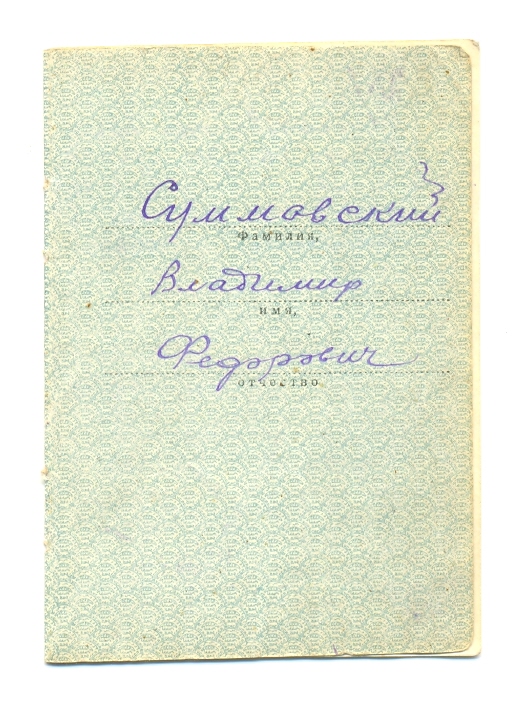 Суммовский
Фамилия,
Владимир
имя,
Федорович
отчество